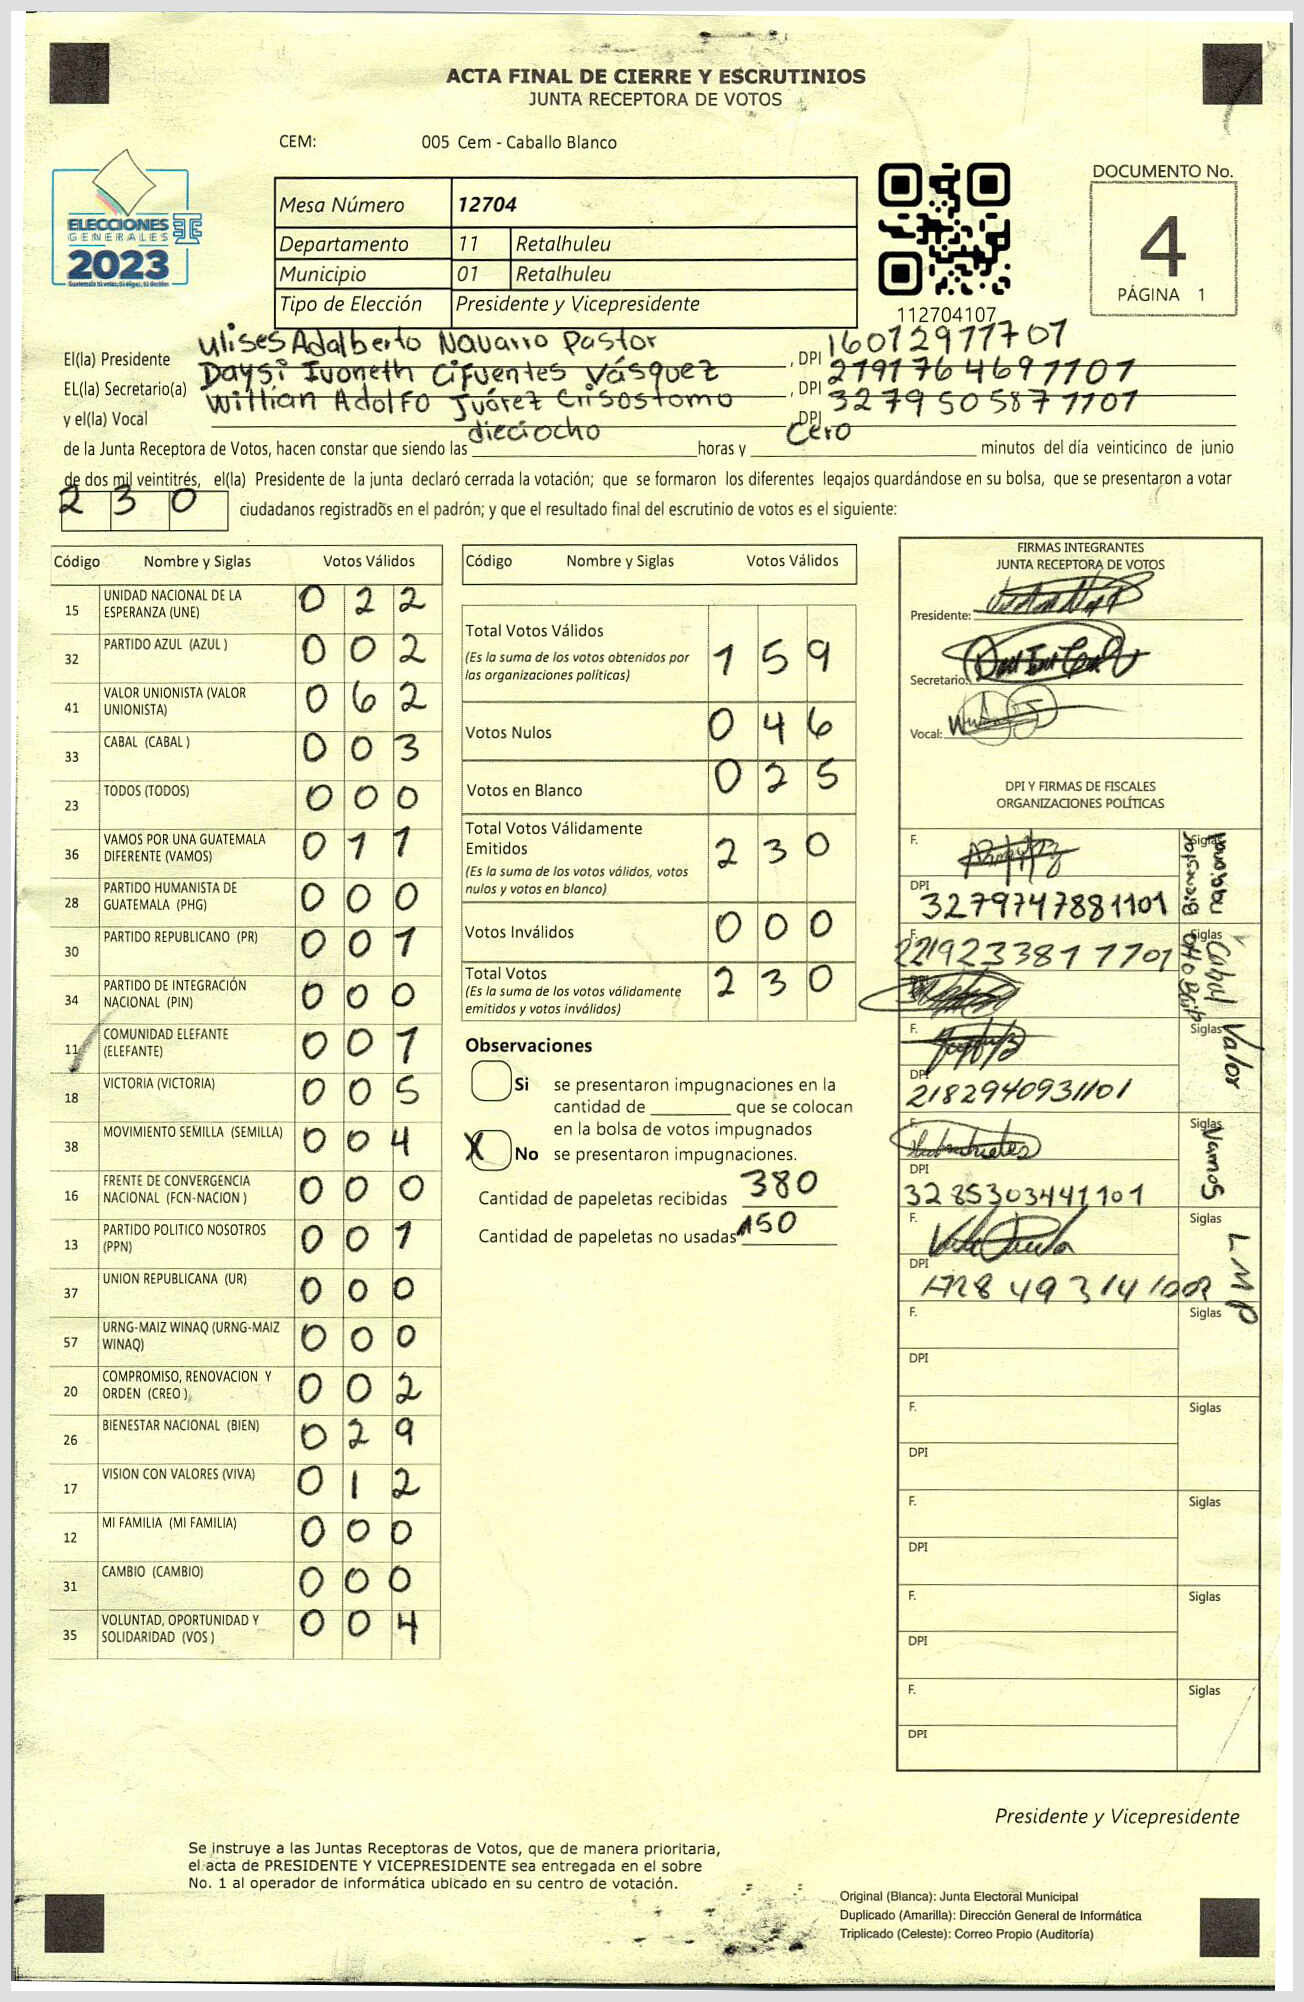 ACTA FINAL DE CIERRE Y ESCRUTINIOS
JUNTA RECEPTORA DE VOTOS
CEM: 005 Cem - Caballo Blanco
ELECCIONES
GENERALES
2023
Mesa Número 12704
Departamento 11 Retalhuleu
Municipio 01 Retalhuleu
Tipo de Elección Presidente y Vicepresidente
112704107
DOCUMENTO No.
4
PÁGINA 1
El(la) Presidente Ulises Adalberto Navarro Pastor, DPI 160129117701
EL(la) Secretario(a) Daysi Ivoneth Cifuentes Vásquez, DPI 2191764691101
y el(la) Vocal Willian Adolfo Juárez Crisostomo DPI 3279505871101
de la Junta Receptora de Votos, hacen constar que siendo las dieciocho horas y Cero minutos del día veinticinco de junio
de dos mil veintitrés, el(la) Presidente de la junta declaró cerrada la votación; que se formaron los diferentes legajos guardándose en su bolsa, que se presentaron a votar
230 ciudadanos registrados en el padrón; y que el resultado final del escrutinio de votos es el siguiente:
Código Nombre y Siglas Votos Válidos
15 UNIDAD NACIONAL DE LA ESPERANZA (UNE) 0 2 2
32 PARTIDO AZUL (AZUL ) 0 0 2
41 VALOR UNIONISTA (VALOR UNIONISTA) 0 6 2
33 CABAL (CABAL ) 0 0 3
23 TODOS (TODOS) 0 0 0
36 VAMOS POR UNA GUATEMALA DIFERENTE (VAMOS) 0 1 1
28 PARTIDO HUMANISTA DE GUATEMALA (PHG) 0 0 0
30 PARTIDO REPUBLICANO (PR) 0 0 1
34 PARTIDO DE INTEGRACIÓN NACIONAL (PIN) 0 0 0
11 COMUNIDAD ELEFANTE (ELEFANTE) 0 0 1
18 VICTORIA (VICTORIA) 0 0 5
38 MOVIMIENTO SEMILLA (SEMILLA) 0 0 4
16 FRENTE DE CONVERGENCIA NACIONAL (FCN-NACION ) 0 0 0
13 PARTIDO POLITICO NOSOTROS (PPN) 0 0 1
37 UNION REPUBLICANA (UR) 0 0 0
57 URNG-MAIZ WINAQ (URNG-MAIZ WINAQ) 0 0 0
20 COMPROMISO, RENOVACION Y ORDEN (CREO ) 0 0 2
26 BIENESTAR NACIONAL (BIEN) 0 2 9
17 VISION CON VALORES (VIVA) 0 1 2
12 MI FAMILIA (MI FAMILIA) 0 0 0
31 CAMBIO (CAMBIO) 0 0 0
35 VOLUNTAD, OPORTUNIDAD Y SOLIDARIDAD (VOS ) 0 0 4
Código Nombre y Siglas Votos Válidos
Total Votos Válidos 1 5 9
(Es la suma de los votos obtenidos por
las organizaciones políticas)
Votos Nulos 0 4 6
Votos en Blanco 0 2 5
Total Votos Válidamente
Emitidos 2 3 0
(Es la suma de los votos válidos, votos
nulos y votos en blanco)
Votos Inválidos 0 0 0
Total Votos 2 3 0
(Es la suma de los votos válidamente
emitidos y votos inválidos)
Observaciones
Si se presentaron impugnaciones en la
cantidad de ________ que se colocan
en la bolsa de votos impugnados
X No se presentaron impugnaciones.
Cantidad de papeletas recibidas 380
Cantidad de papeletas no usadas 150
FIRMAS INTEGRANTES
JUNTA RECEPTORA DE VOTOS
Presidente:
Secretario:
Vocal:
DPI Y FIRMAS DE FISCALES
ORGANIZACIONES POLÍTICAS
F. Siglas Bienestar nacional
DPI 3279747881101
F. Siglas Cabal
2219233817701
DPI
F. Siglas Valor
DPI
2182940931101
F. Siglas Vamos
DPI
3285303441101
F. Siglas LMP
DPI
F. Siglas
DPI
F. Siglas
DPI
F. Siglas
DPI
F. Siglas
DPI
F. Siglas
DPI
Presidente y Vicepresidente
Se instruye a las Juntas Receptoras de Votos, que de manera prioritaria,
el acta de PRESIDENTE Y VICEPRESIDENTE sea entregada en el sobre
No. 1 al operador de informática ubicado en su centro de votación.
Original (Blanca): Junta Electoral Municipal
Duplicado (Amarilla): Dirección General de Informática
Triplicado (Celeste): Correo Propio (Auditoría)